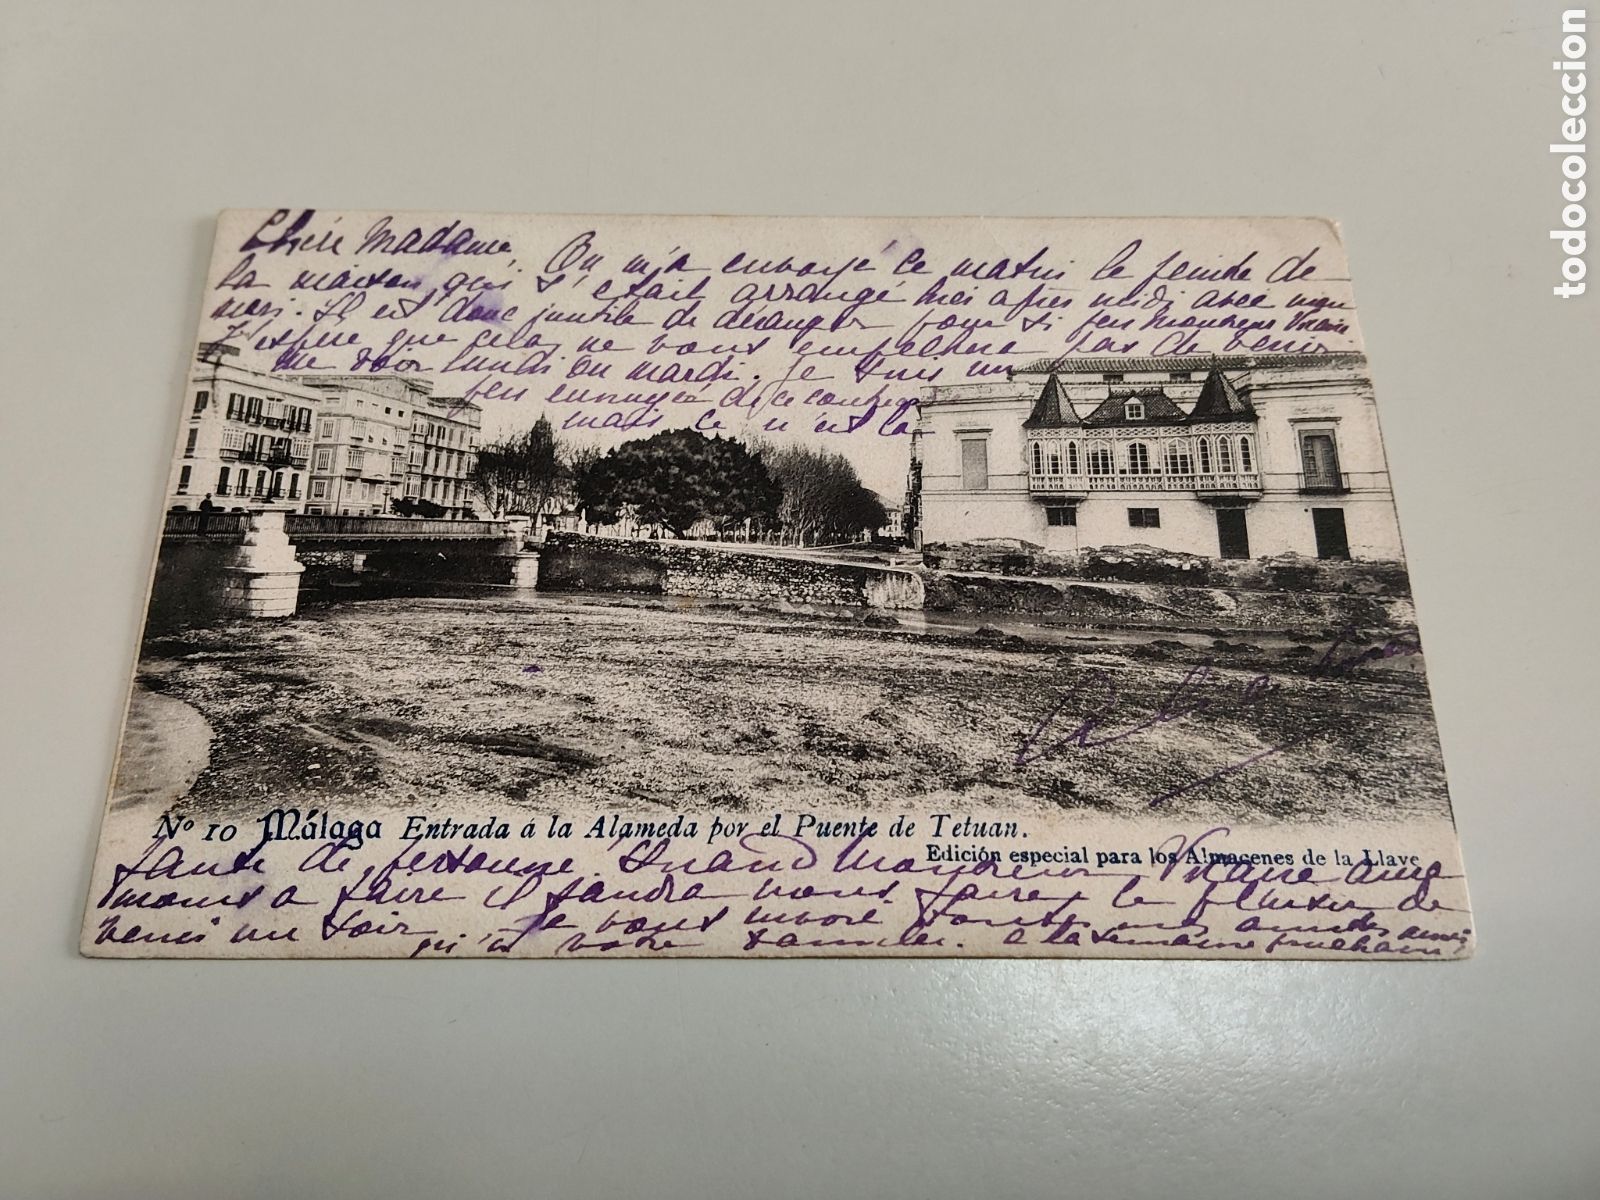 Chère Madame, On m'a envoyé ce matin le peintre de
la maison, qui s'était arrangé hier après midi avec mon
mari. Il est donc inutile de déranger pour si peu Monsieur
J'espère que cela ne vous empêchera pas de venir
me voir lundi ou mardi. Je suis un
peu ennuyée de ce
mais ce n'est la
No 10 Málaga Entrada á la Alameda por el Puente de Tetuan.
Edición especial para los Almacenes de la Llave
faute de personne. Quand Monsieur aura
moins à faire il faudra nous faire le plaisir de
venir un soir. Je vous envoie toutes mes amitiés ainsi
qu'à votre famille. à la semaine prochaine
todocoleccion